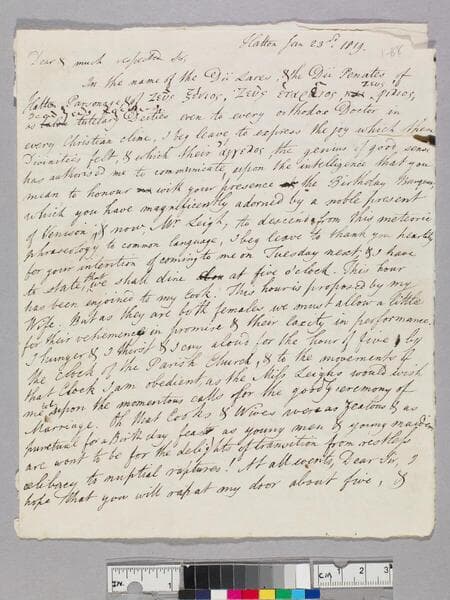 Hatton Jan 23d. 1819.
Dear & much respected Sir,
In the name of the Dii Lares, & the Dii Penates of
Hatton Parsonage, & of Ζευς Ξενιος, Ζευς Ζευς φιλιος,
as tutelary Deities even to every orthodox Doctor in
every Christian clime, I beg leave to express the joy which these
Divinities felt, & which their αγγελος, the genius of good sense,
has authorised me to communicate, upon the intelligence that you
mean to honour with your presence the Birthday
which you have magnificently adorned by a noble present
of Venison; & now, Mr Leigh, to descend from this meteoric
phraseology to common language, I beg leave to thank you heartily
for your intention of coming to me on Tuesday next, & I have
to state that we shall dine at five o'clock. This hour
has been enjoined to my Cook. This hour is proposed by my
Wife. But as they are both females we must allow a little
for their vehemence in promise & their laxity in performance.
I hunger & I thirst & I cry aloud for the hour of five, by
the Clock of the Parish Church, & to the movements of
that Clock I am obedient, as the Miss Leighs would wish
me upon the momentous calls for the good ceremony of
Marriage. Oh that Cooks & Wives were as zealous & as
punctual for a Birth day feast as young men & young maidens
are wont to be for the delights of transition from restless
celibacy to nuptial raptures! At all events, Dear Sir, I
hope that you will rap at my door about five, &
IN.
1
2
CM
1
2
3